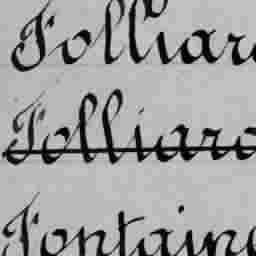 Folliar
Folliaro
Fontaine